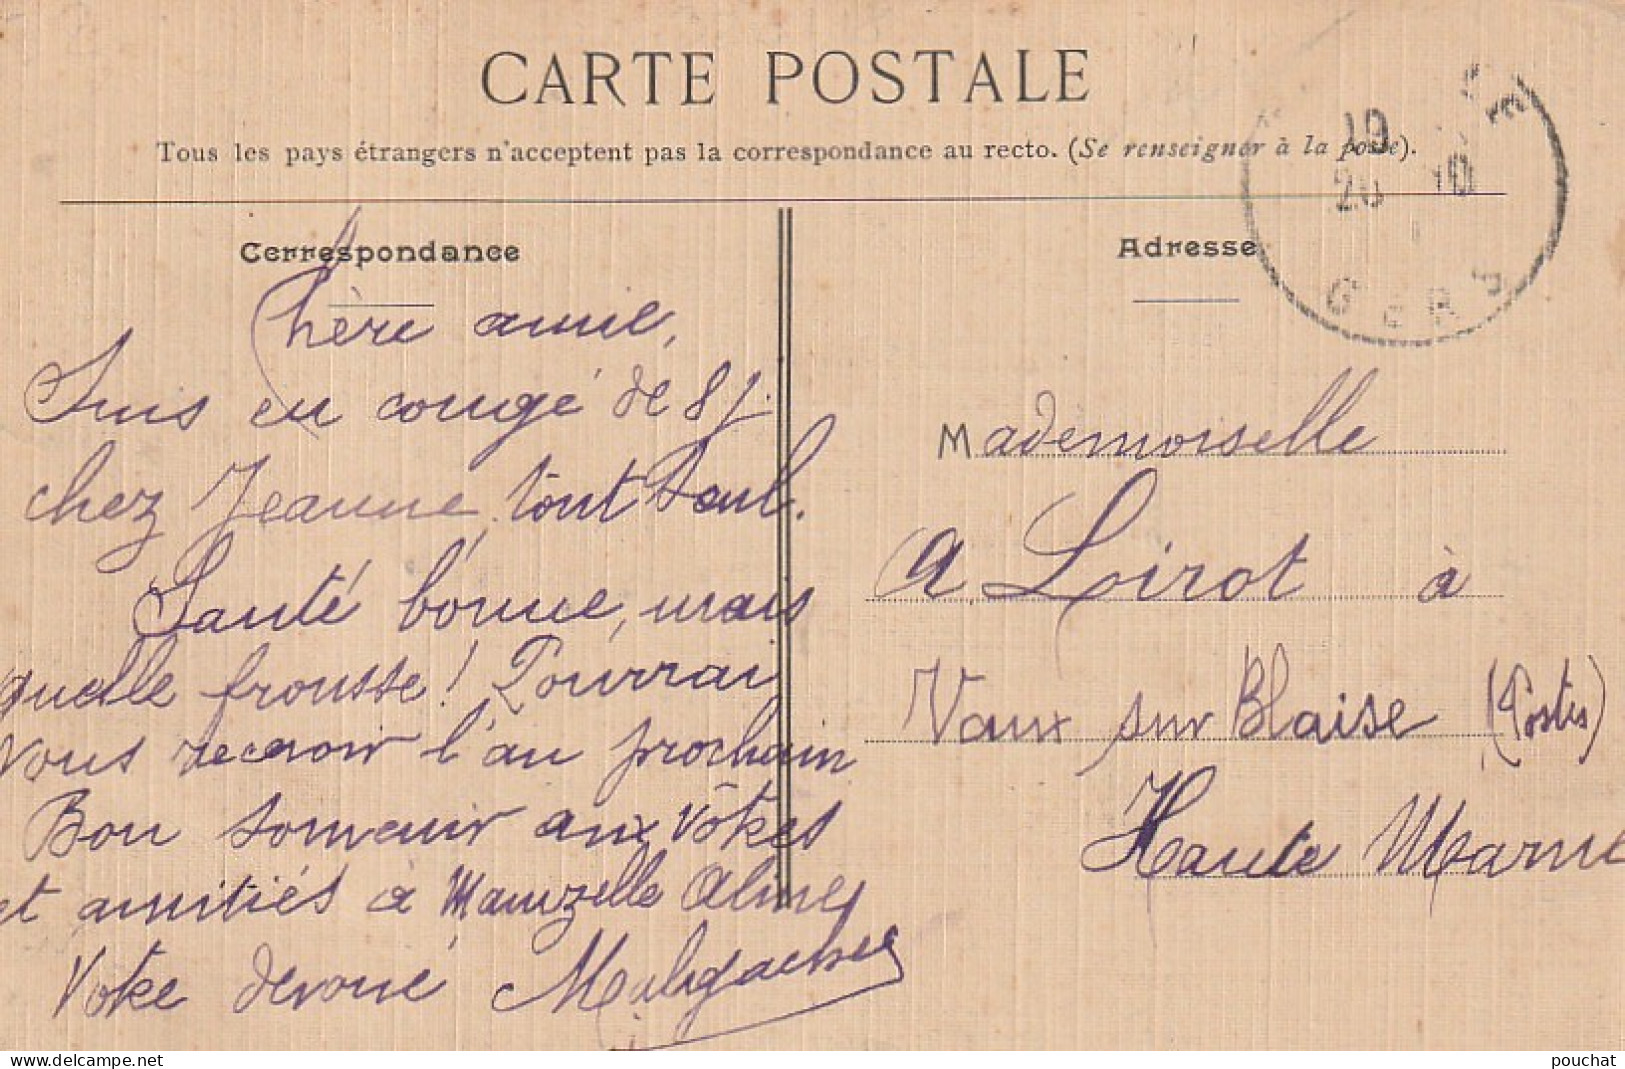 CARTE POSTALE
Tous les pays étrangers n'acceptent pas la correspondance au recto. (Se renseigner à la poste).
Correspondance
Chère amie,
Suis en congé de 8 j.
chez Jeanne, tout seul.
Santé bonne, mais
quelle frousse ! Pourrai
vous recevoir l'an prochain
Bon souvenir aux vôtres
et amitiés à Mamzelle Aline
Votre dévoué
Adresse
19
26 10
GERS
Mademoiselle
A Loirot à
Vaux sur Blaise (Postes)
Haute Marne
pouchat